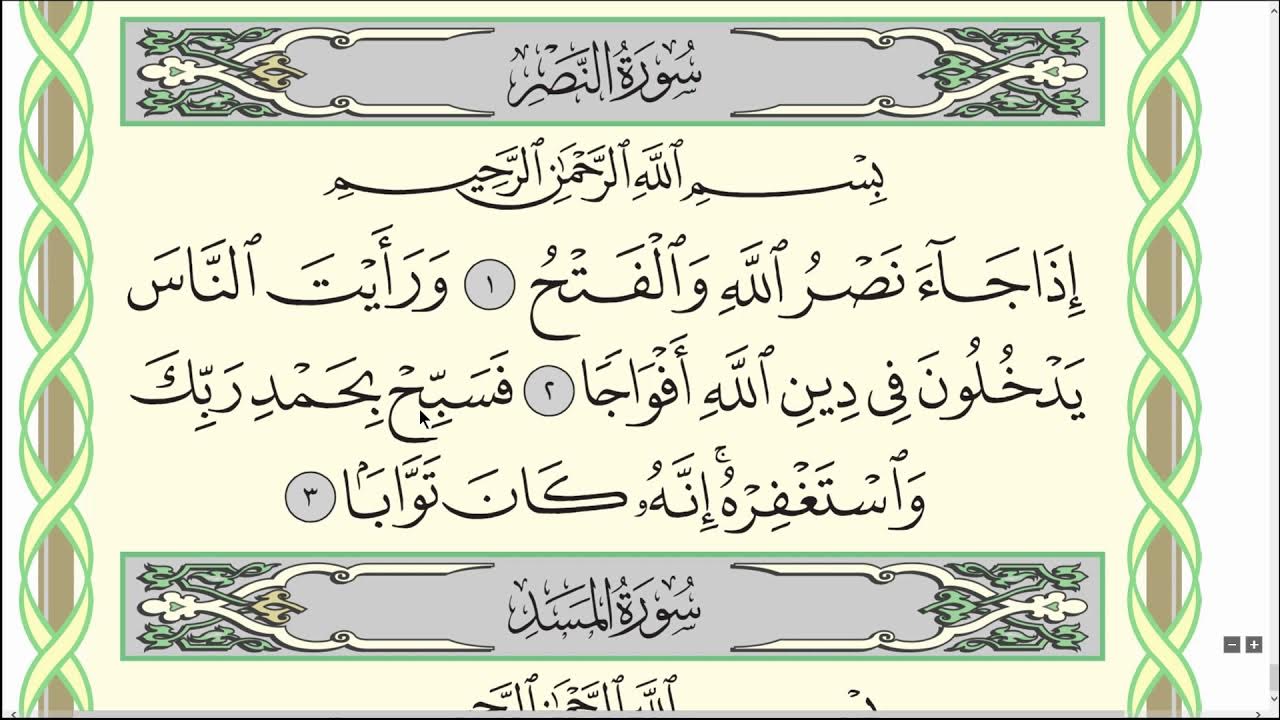 سُورَةُ النَّصْرِ
بِسْمِ ٱللَّهِ ٱلرَّحْمَٰنِ ٱلرَّحِيمِ
إِذَا جَآءَ نَصْرُ ٱللَّهِ وَٱلْفَتْحُ ١ وَرَأَيْتَ ٱلنَّاسَ
يَدْخُلُونَ فِى دِينِ ٱللَّهِ أَفْوَاجًا ٢ فَسَبِّحْ بِحَمْدِ رَبِّكَ
وَٱسْتَغْفِرْهُ ۚ إِنَّهُۥ كَانَ تَوَّابَۢا ٣
سُورَةُ المَسَدِ
بِسْمِ ٱللَّهِ ٱلرَّحْمَٰنِ ٱلرَّحِيمِ